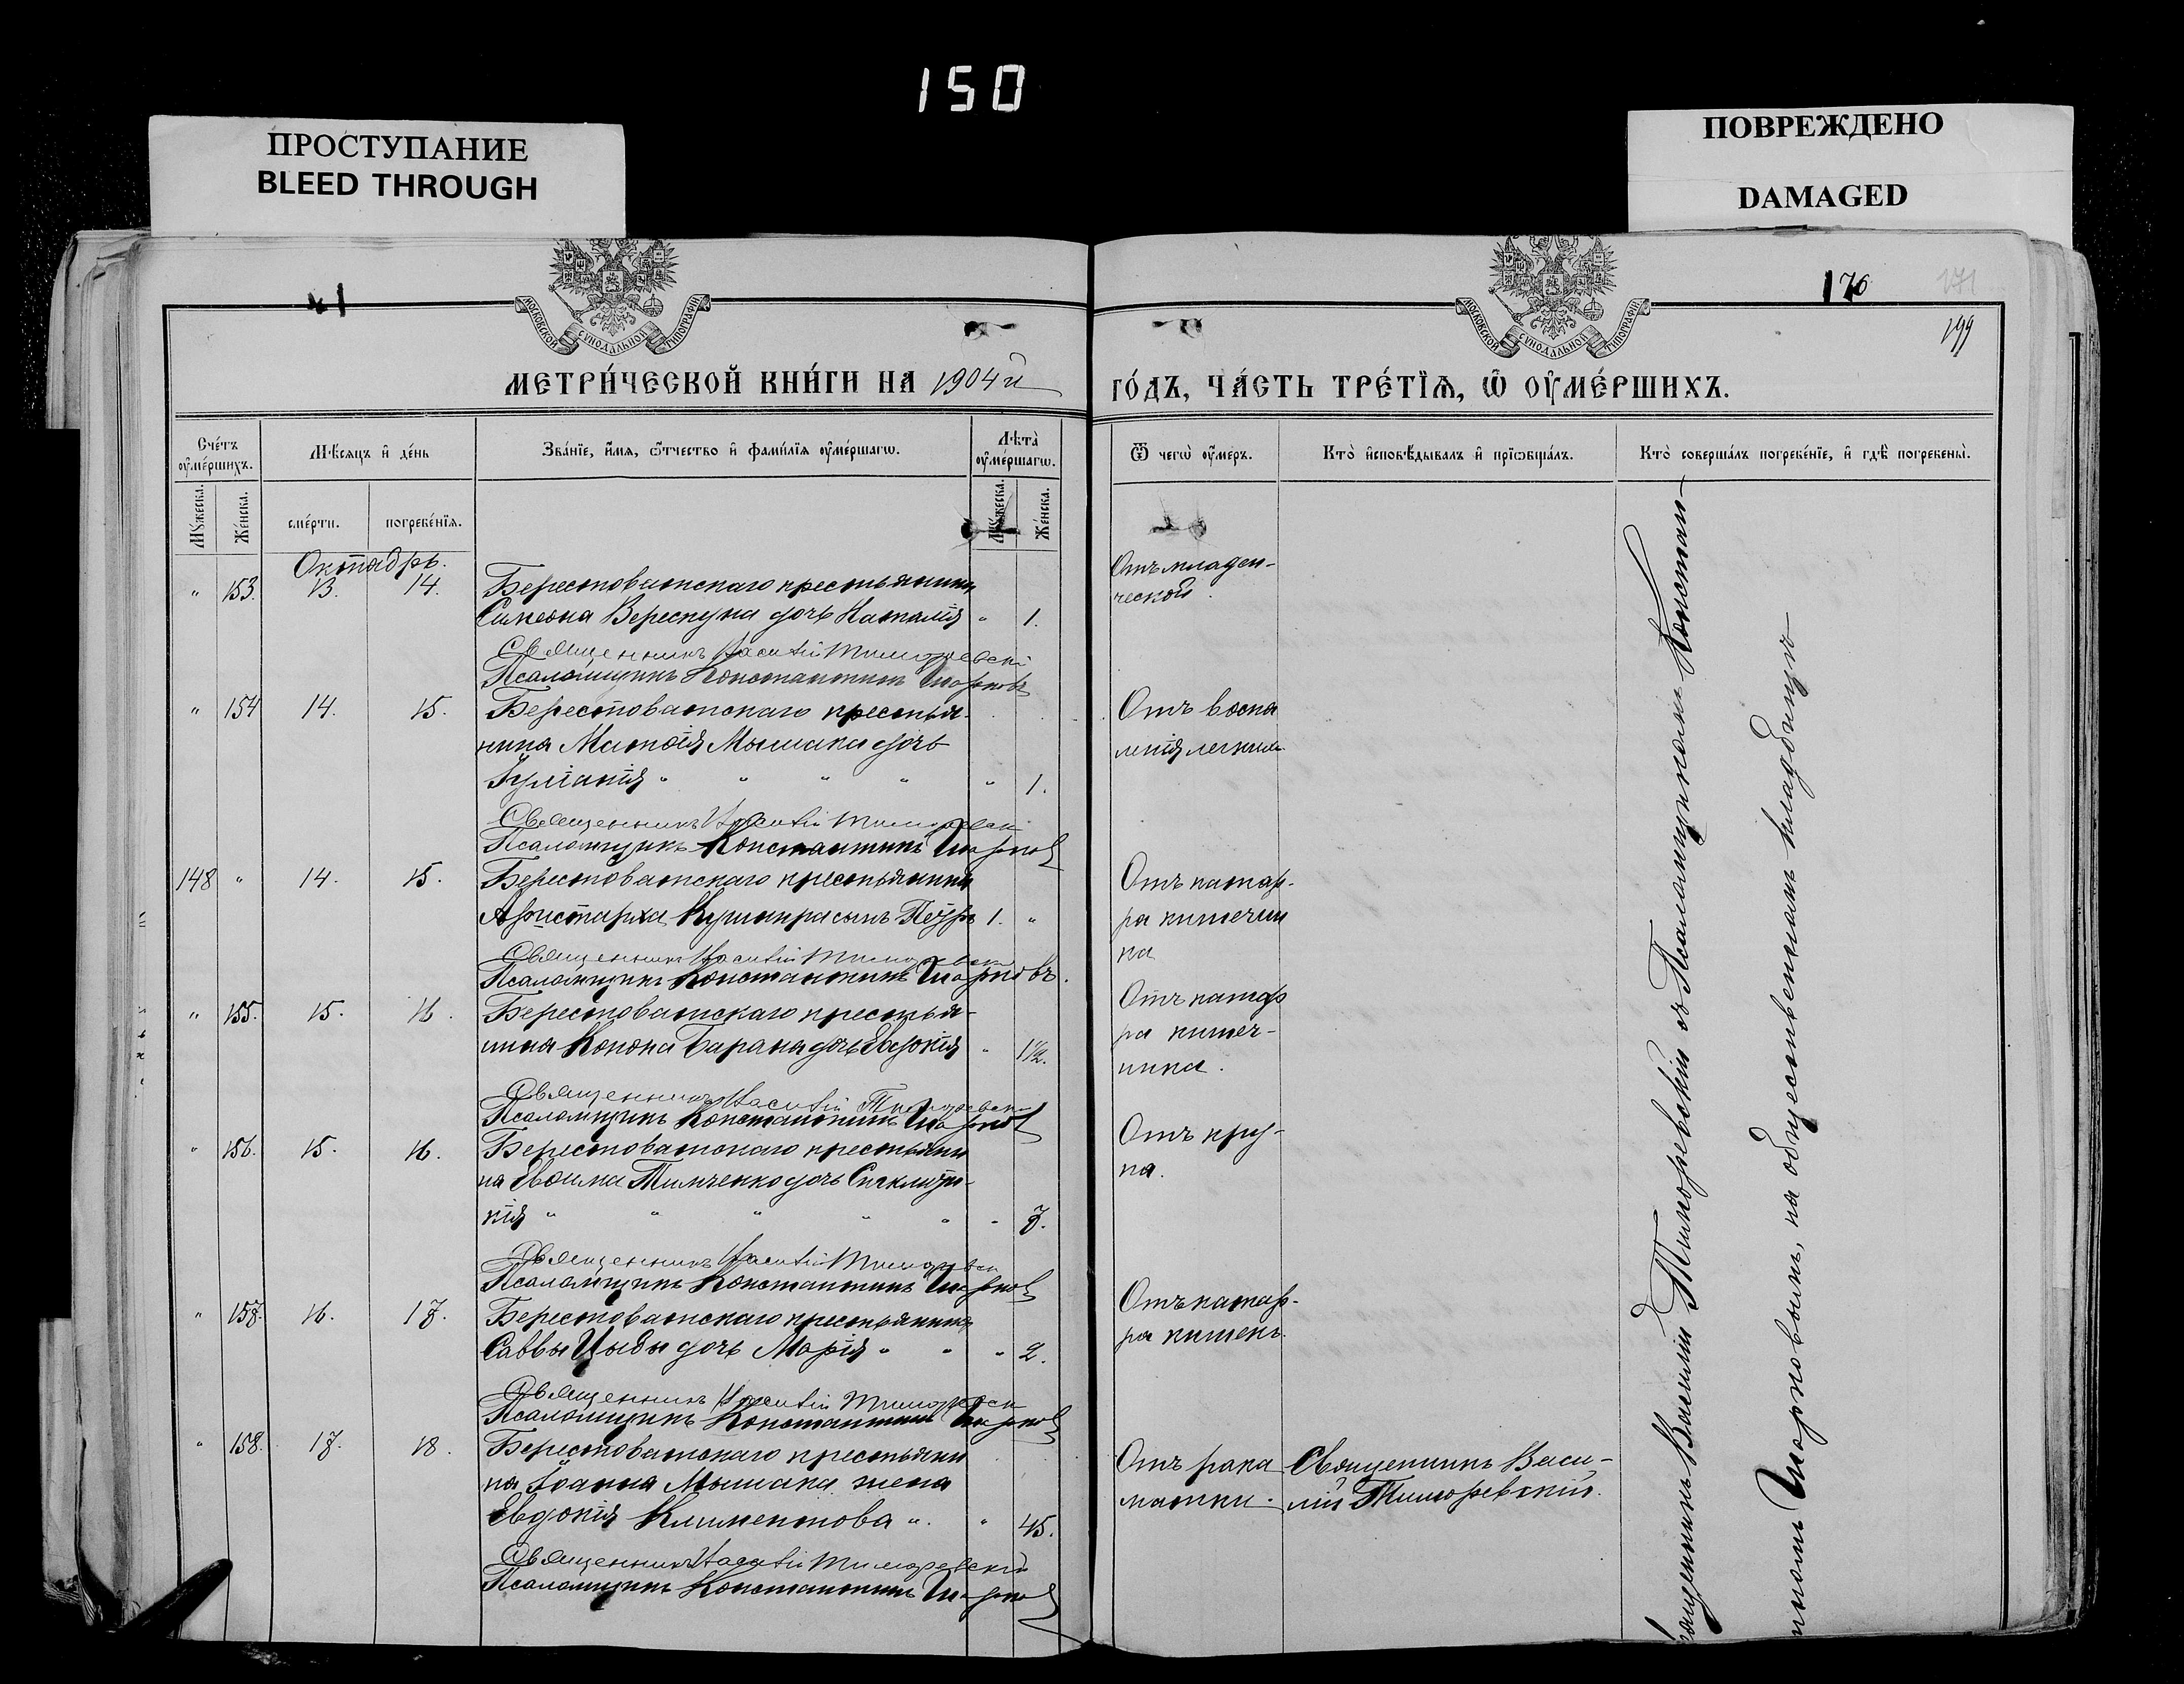 150
ПРОСТУПАНИЕ
BLEED THROUGH
ПОВРЕЖДЕНО
DAMAGED
МОСКОВСКОЙ СУНОДАЛЬНОЙ ТИПОГРАФІИ
МОСКОВСКОЙ СУНОДАЛЬНОЙ ТИПОГРАФІИ
176
171
199
МЕТРИ́ЧЕСКОЙ КНИ́ГИ НА 1904й
ГО́ДЪ, ЧА́СТЬ ТРЕ́ТЇѦ, Ѡ ОУ҆МЕ́РШИХЪ.
Сче́тъ оу҆ме́ршихъ.
Мѣ́сяцъ и҆ де́нь
Зва́нїе, и҆́мя, ѻ҆́тчество и҆ фами́лїя оу҆ме́ршагѡ.
Лѣта̀ оу҆ме́ршагѡ.
Ѿ чегѡ̀ оу҆́меръ.
Кто̀ и҆сповѣ́дывалъ и҆ прїѡбща́лъ.
Кто̀ соверша́лъ погребе́нїе, и҆ гдѣ̀ погребены̀.
Мꙋ́жеска.
Же́нска.
сме́рти.
погребе́нїя.
Мꙋ́жеска.
Же́нска.
Октябрь.
" 153. 13. 14. Берестоватскаго крестьянина
Симеона Верескуна дочь Наталія " 1.
Отъ младен-
ческой.
Священникъ Василій Тиморевскій
Псаломщикъ Константинъ Шарковъ
" 154 14. 15. Берестоватскаго крестья-
нина Матѳія Мышака дочь
Іуліанія " " " " " 1.
Отъ воспа
ленія легкихъ
Священникъ Василій Тиморевскій
Псаломщикъ Константинъ Шарковъ
148 " 14. 15. Берестоватскаго крестьянина
Аристарха сынъ Петръ 1. "
Отъ катар-
ра кишечни
ка
Священникъ Василій Тиморевскій
Псаломщикъ Константинъ Шарковъ.
" 155. 15. 16. Берестоватскаго крестья-
нина Конона Барана дочь Евдокія " 1½.
Отъ катар
ра кишеч-
ника.
Священникъ Василій Тиморевскій
Псаломщикъ Константинъ Шарковъ
" 156. 15. 16. Берестоватскаго крестьяни
на Евѳима Тимченко дочь Сигклити-
кія " " " " " " 7.
Отъ кру-
па.
Священникъ Василій Тиморевскій
Псаломщикъ Константинъ Шарковъ
" 157. 16. 17. Берестоватскаго крестьянина
Саввы Цыбы дочь Марія " " " 2.
Отъ катар-
ра кишекъ.
Священникъ Василій Тиморевскій
Псаломщикъ Константинъ Шарковъ
" 158. 17. 18. Берестоватскаго крестьяни
на Іоанна Мышака жена
Евдокія Климентова " " 45.
Отъ рака
матки.
Священникъ Васи-
лій Тиморевскій.
Священникъ Василій Тиморевскій
Псаломщикъ Константинъ Шарковъ
Священникъ Василій Тиморевскій съ Псаломщикомъ Констан-
тиномъ Шарковымъ, на общественномъ кладбищѣ